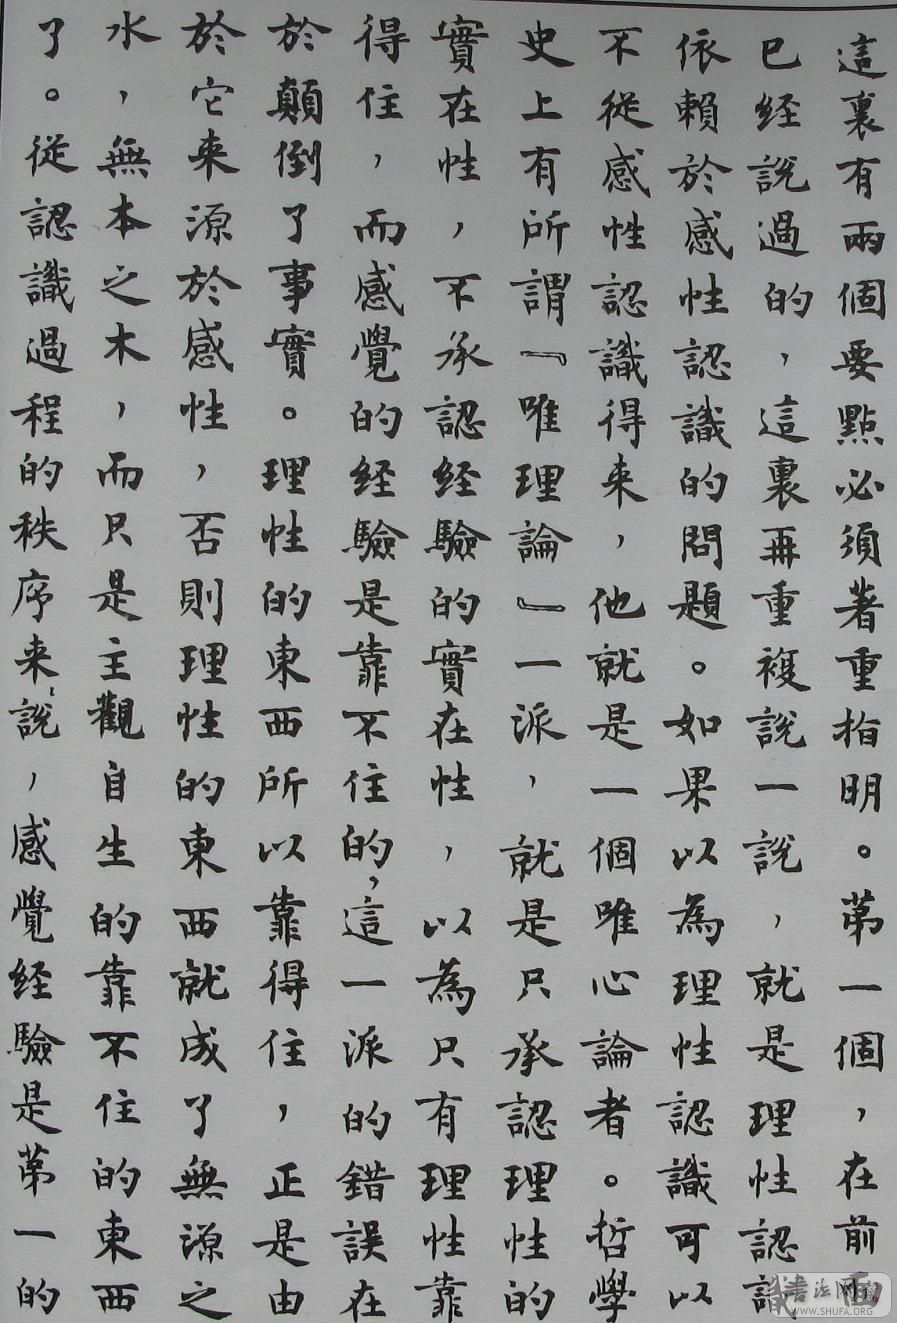 這裏有兩個要點必須著重指明。第一個，在前面
已経說過的，這裏再重複說一說，就是理性認識
依賴於感性認識的問題。如果以為理性認識可以
不從感性認識得来，他就是一個唯心論者。哲學
史上有所謂『唯理論』一派，就是只承認理性的
實在性，不承認経驗的實在性，以為只有理性靠
得住，而感覺的経驗是靠不住的，這一派的錯誤在
於顛倒了事實。理性的東西所以靠得住，正是由
於它来源於感性，否則理性的東西就成了無源之
水，無本之木，而只是主觀自生的靠不住的東西
了。從認識過程的秩序来說，感覺経驗是第一的
WWW.SHUFA.ORG